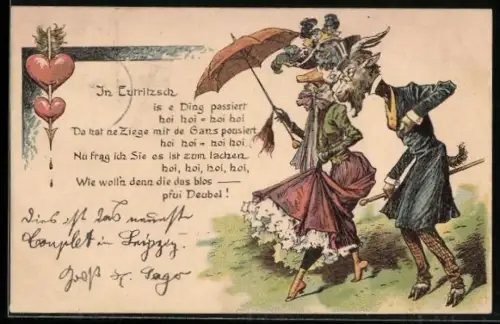 In Eutritzsch
is e Ding passiert
hoi hoi - hoi hoi
Da hat ne Ziege mit de Gans pousiert
hoi hoi - hoi hoi
Nu frag ich Sie es ist zum lachen
hoi, hoi, hoi, hoi,
Wie woll'n denn die das blos —
pfui Deubel!
Dies ist das neueste
Couplet in Leipzig.